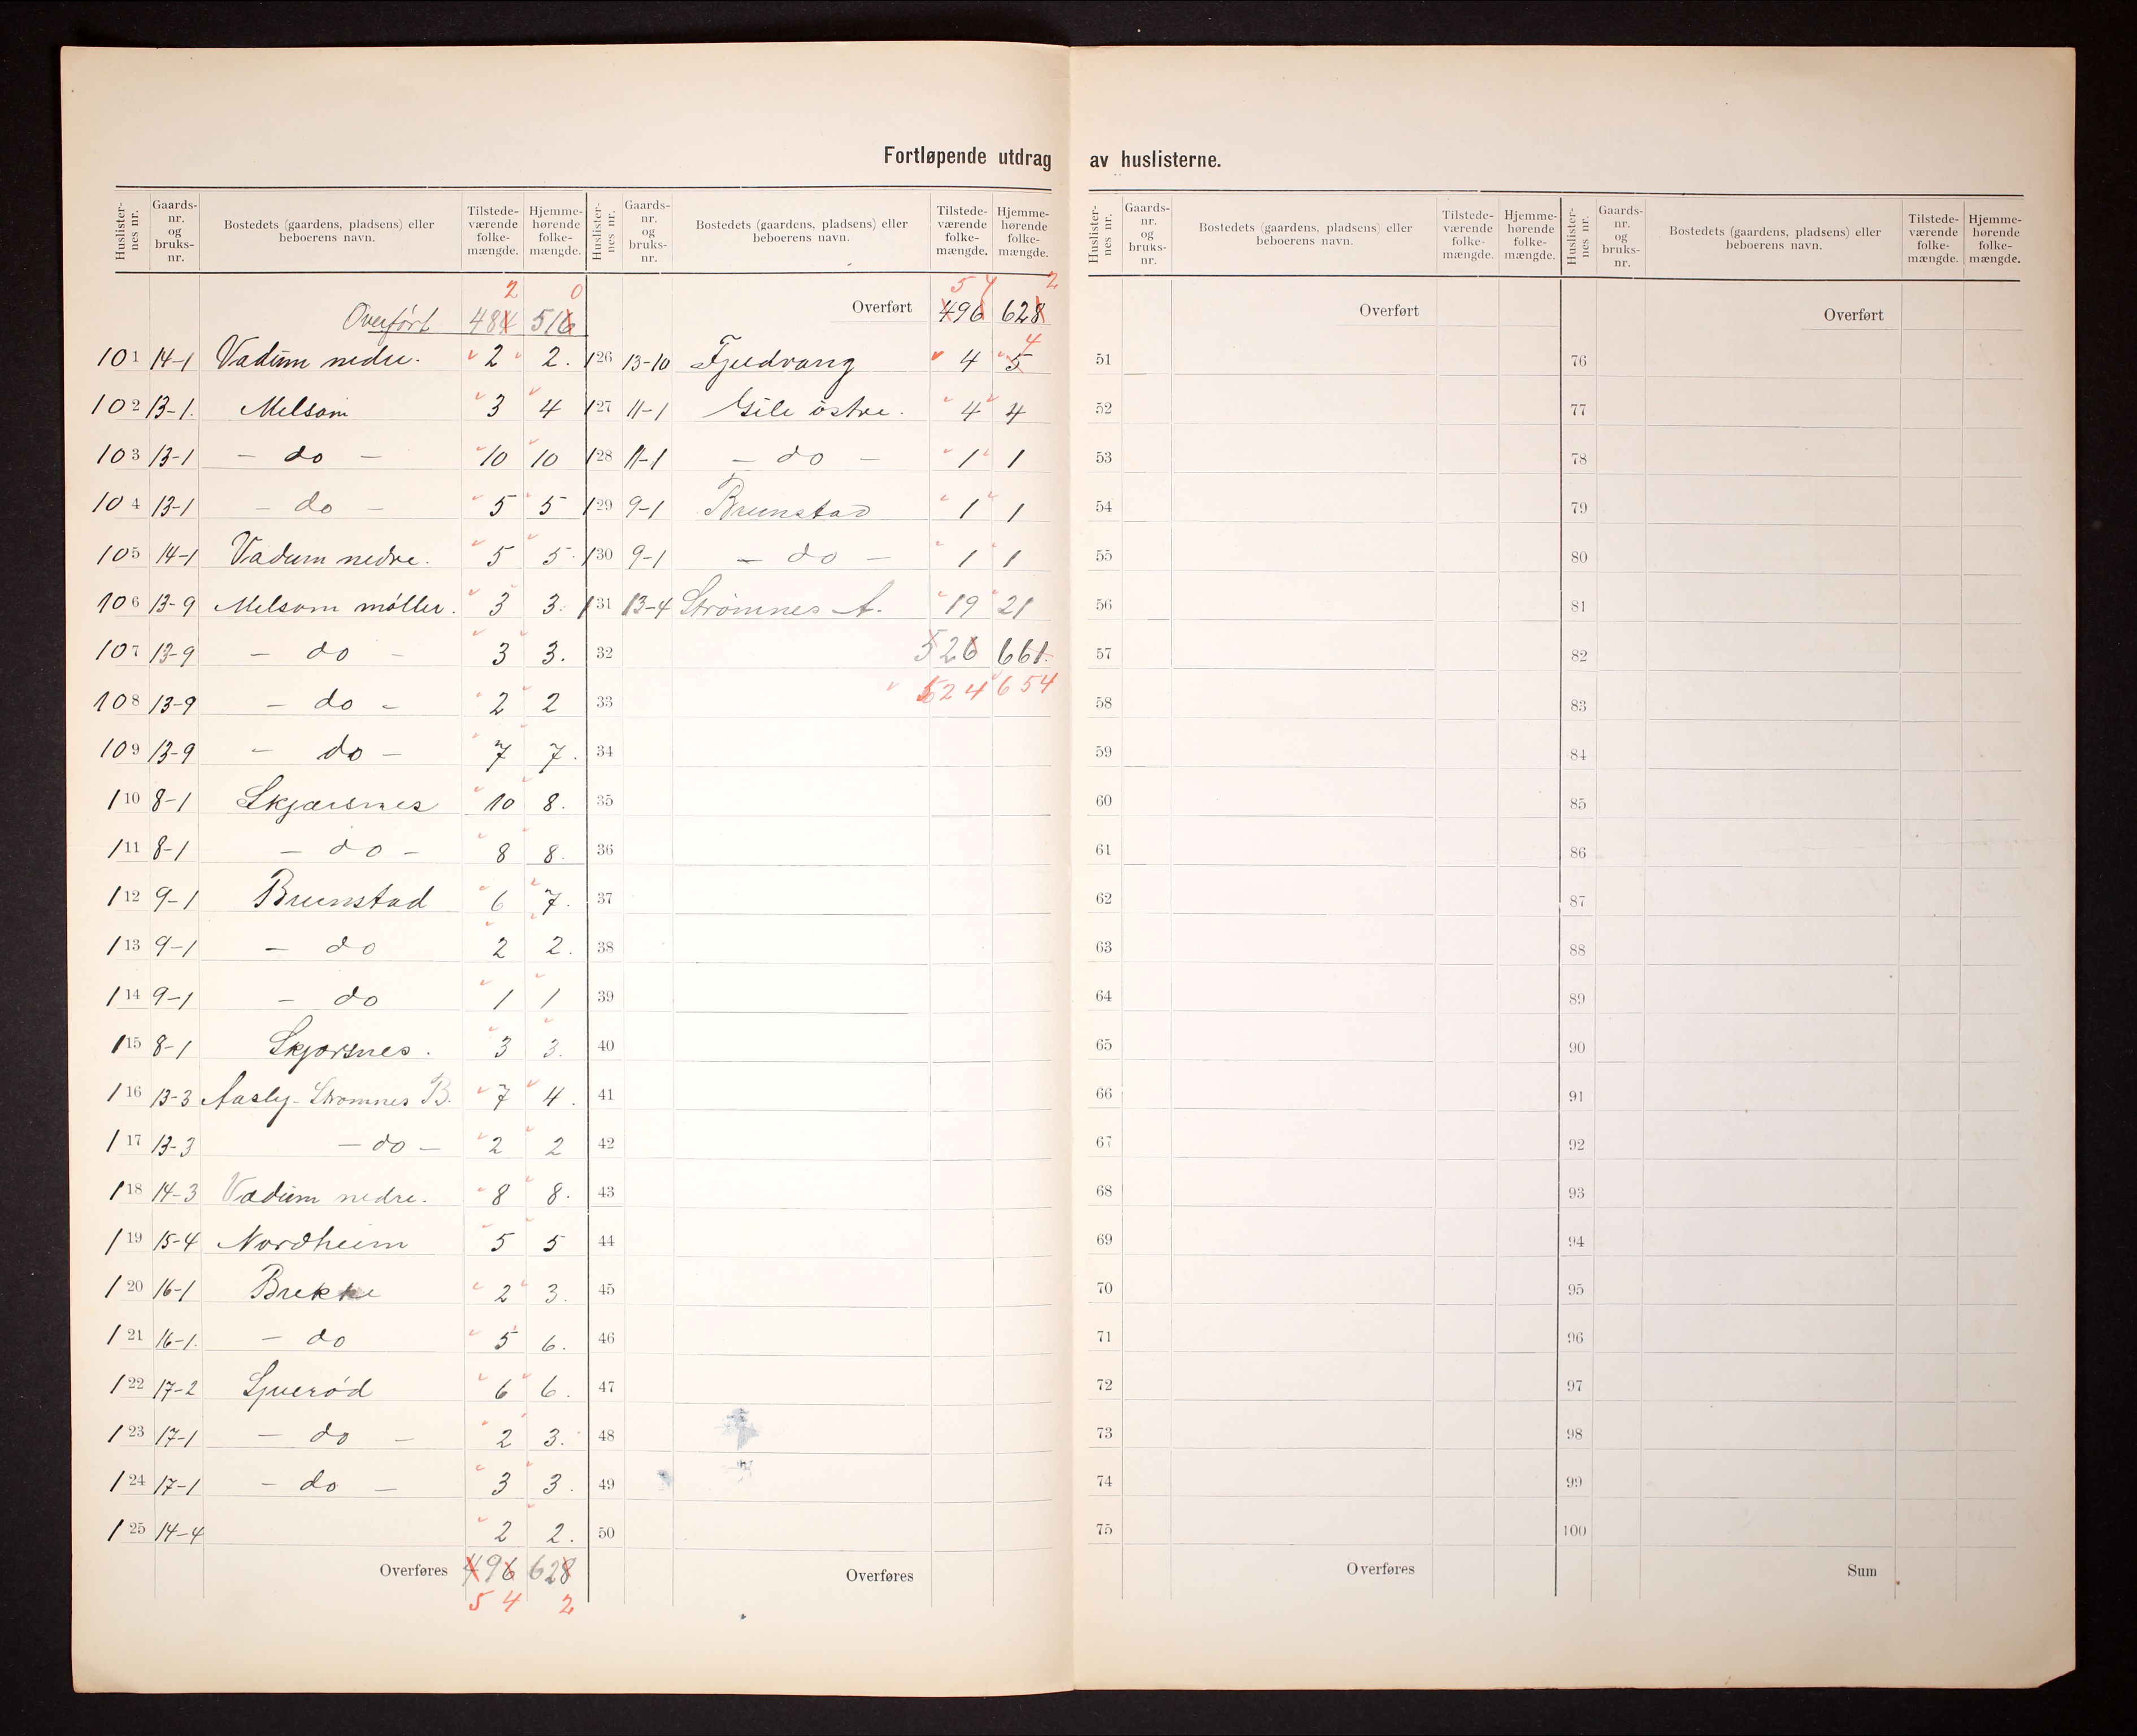 Fortløpende utdrag av huslisterne.
Huslister-nes nr. Gaards-nr. og bruks-nr. Bostedets (gaardens, pladsens) eller beboerens navn. Tilstede-værende folke-mængde. Hjemme-hørende folke-mængde.
2 0
Overført 484 516
101 14-1 Vadum nedre. 2 2.
102 13-1. Melsom 3 4
103 13-1 - do - 10 10
104 13-1 - do - 5 5
105 14-1 Vadum nedre. 5 5.
106 13-9 Melsom møller. 3 3.
107 13-9 - do - 3 3.
108 13-9 - do - 2 2
109 13-9 - do - 7 7.
110 8-1 Skjærsnes 10 8.
111 8-1 - do - 8 8.
112 9-1 Brunstad 6 7.
113 9-1 - do 2 2.
114 9-1 - do 1 1
115 8-1 Skjærsnes. 3 3.
116 13-3 Aasly-Strømnes B. 7 4.
117 13-3 - do - 2 2
118 14-3 Vadum nedre. 8 8.
119 15-4 Nordheim 5 5
120 16-1 Brekke 2 3.
121 16-1. - do 5 6.
122 17-2 Sjuerød 6 6.
123 17-1 - do - 2 3.
124 17-1 - do - 3 3.
125 14-4 2 2.
Overføres 496 628
5 4 2
Huslister-nes nr. Gaards-nr. og bruks-nr. Bostedets (gaardens, pladsens) eller beboerens navn. Tilstede-værende folke-mængde. Hjemme-hørende folke-mængde.
5 4 2
Overført 496 628
4
126 13-10 Fjeldvang 4 5
127 11-1 Gile østre. 4 4
128 11-1 - do - 1 1
129 9-1 Brunstad 1 1
130 9-1 - do - 1 1
131 13-4 Strömnes A. 19 21
32 526 661.
33 524 654
34
35
36
37
38
39
40
41
42
43
44
45
46
47
48
49
50
Overføres
Huslister-nes nr. Gaards-nr. og bruks-nr. Bostedets (gaardens, pladsens) eller beboerens navn. Tilstede-værende folke-mængde. Hjemme-hørende folke-mængde.
Overført
51
52
53
54
55
56
57
58
59
60
61
62
63
64
65
66
67
68
69
70
71
72
73
74
75
Overføres
Huslister-nes nr. Gaards-nr. og bruks-nr. Bostedets (gaardens, pladsens) eller beboerens navn. Tilstede-værende folke-mængde. Hjemme-hørende folke-mængde.
Overført
76
77
78
79
80
81
82
83
84
85
86
87
88
89
90
91
92
93
94
95
96
97
98
99
100
Sum